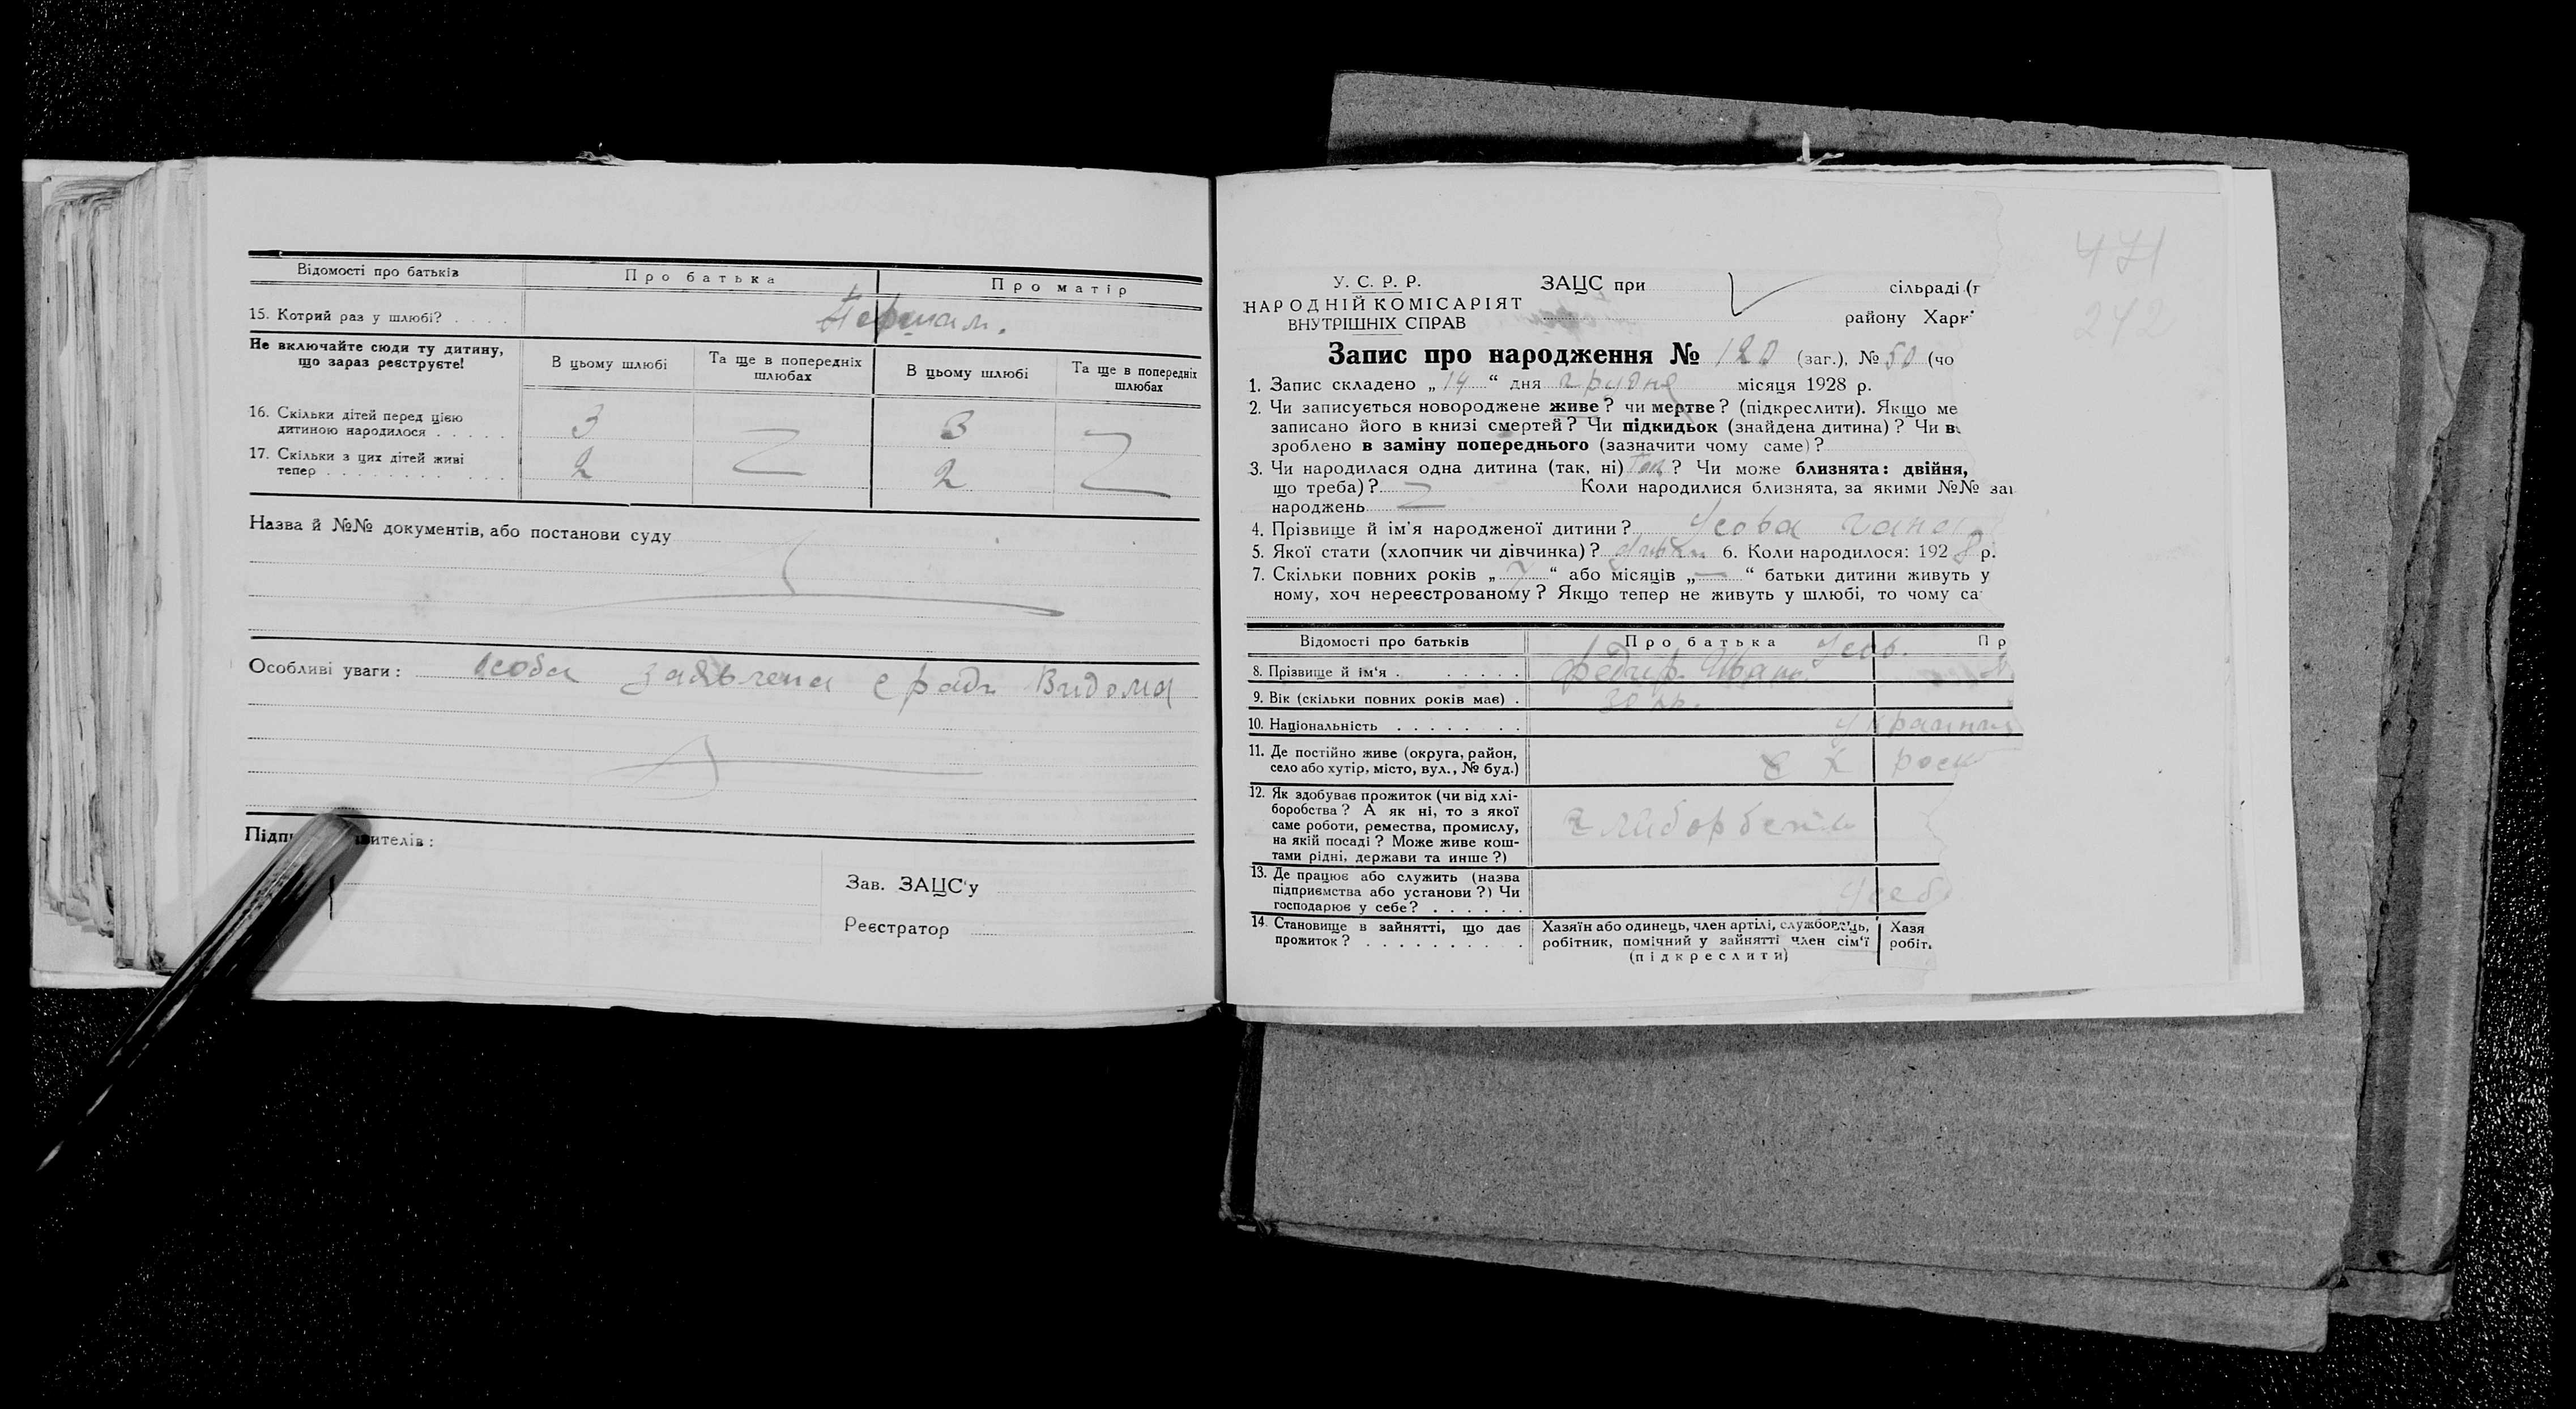 Відомості про батьків Про батька Про матір
15. Котрий раз у шлюбі? . . . . Першам.
Не включайте сюди ту дитину, що зараз реєструєте!
В цьому шлюбі Та ще в попередніх шлюбах В цьому шлюбі Та ще в попередніх шлюбах
16. Скільки дітей перед цією
дитиною народилося . . . . . 3 3
17. Скільки з цих дітей живі
тепер . . . . . . . . . . . . 2 2
Назва й №№ документів, або постанови суду
Особливі уваги: особа заявлена с ради Видома
Підпи вителів:
Зав. ЗАЦС'у
Реєстратор
471
242
У. С. Р. Р.
НАРОДНІЙ КОМІСАРІЯТ
ВНУТРІШНІХ СПРАВ
ЗАЦС при сільраді (г
району Харк
Запис про народження № 120 (заг.), № 50 (чо
1. Запис складено „14“ дня грудня місяця 1928 р.
2. Чи записується новороджене живе? чи мертве? (підкреслити). Якщо ме
записано його в книзі смертей? Чи підкидьок (знайдена дитина)? Чи в
зроблено в заміну попереднього (зазначити чому саме)?
3. Чи народилася одна дитина (так, ні) Так? Чи може близнята: двійня,
що треба)? Коли народилися близнята, за якими №№ заг
народжень
4. Прізвище й ім'я народженої дитини? Усова Гана
5. Якої стати (хлопчик чи дівчинка)? дівчин 6. Коли народилося: 1928 р.
7. Скільки повних років „7“ або місяців „—“ батьки дитини живуть у
ному, хоч нереєстрованому? Якщо тепер не живуть у шлюбі, то чому са
Відомості про батьків Про батька Пр
8. Прізвище й ім'я . . . . . . Усов. Федир Иван
9. Вік (скільки повних років має) . 30 рр.
10. Національність . . . . . . . . Украинц
11. Де постійно живе (округа, район,
село або хутір, місто, вул., № буд.)
12. Як здобуває прожиток (чи від хлі-
боробства? А як ні, то з якої
саме роботи, ремества, промислу,
на якій посаді? Може живе кош-
тами рідні, держави та инше?)
13. Де працює або служить (назва
підприємства або установи?) Чи
господарює у себе? . . . . . . Усеб
14. Становище в зайнятті, що дає
прожиток? . . . . . . . . . .
Хазяїн або одинець, член артілі, службовець,
робітник, помічний у зайнятті член сім'ї
(підкреслити)
Хазя
робіт